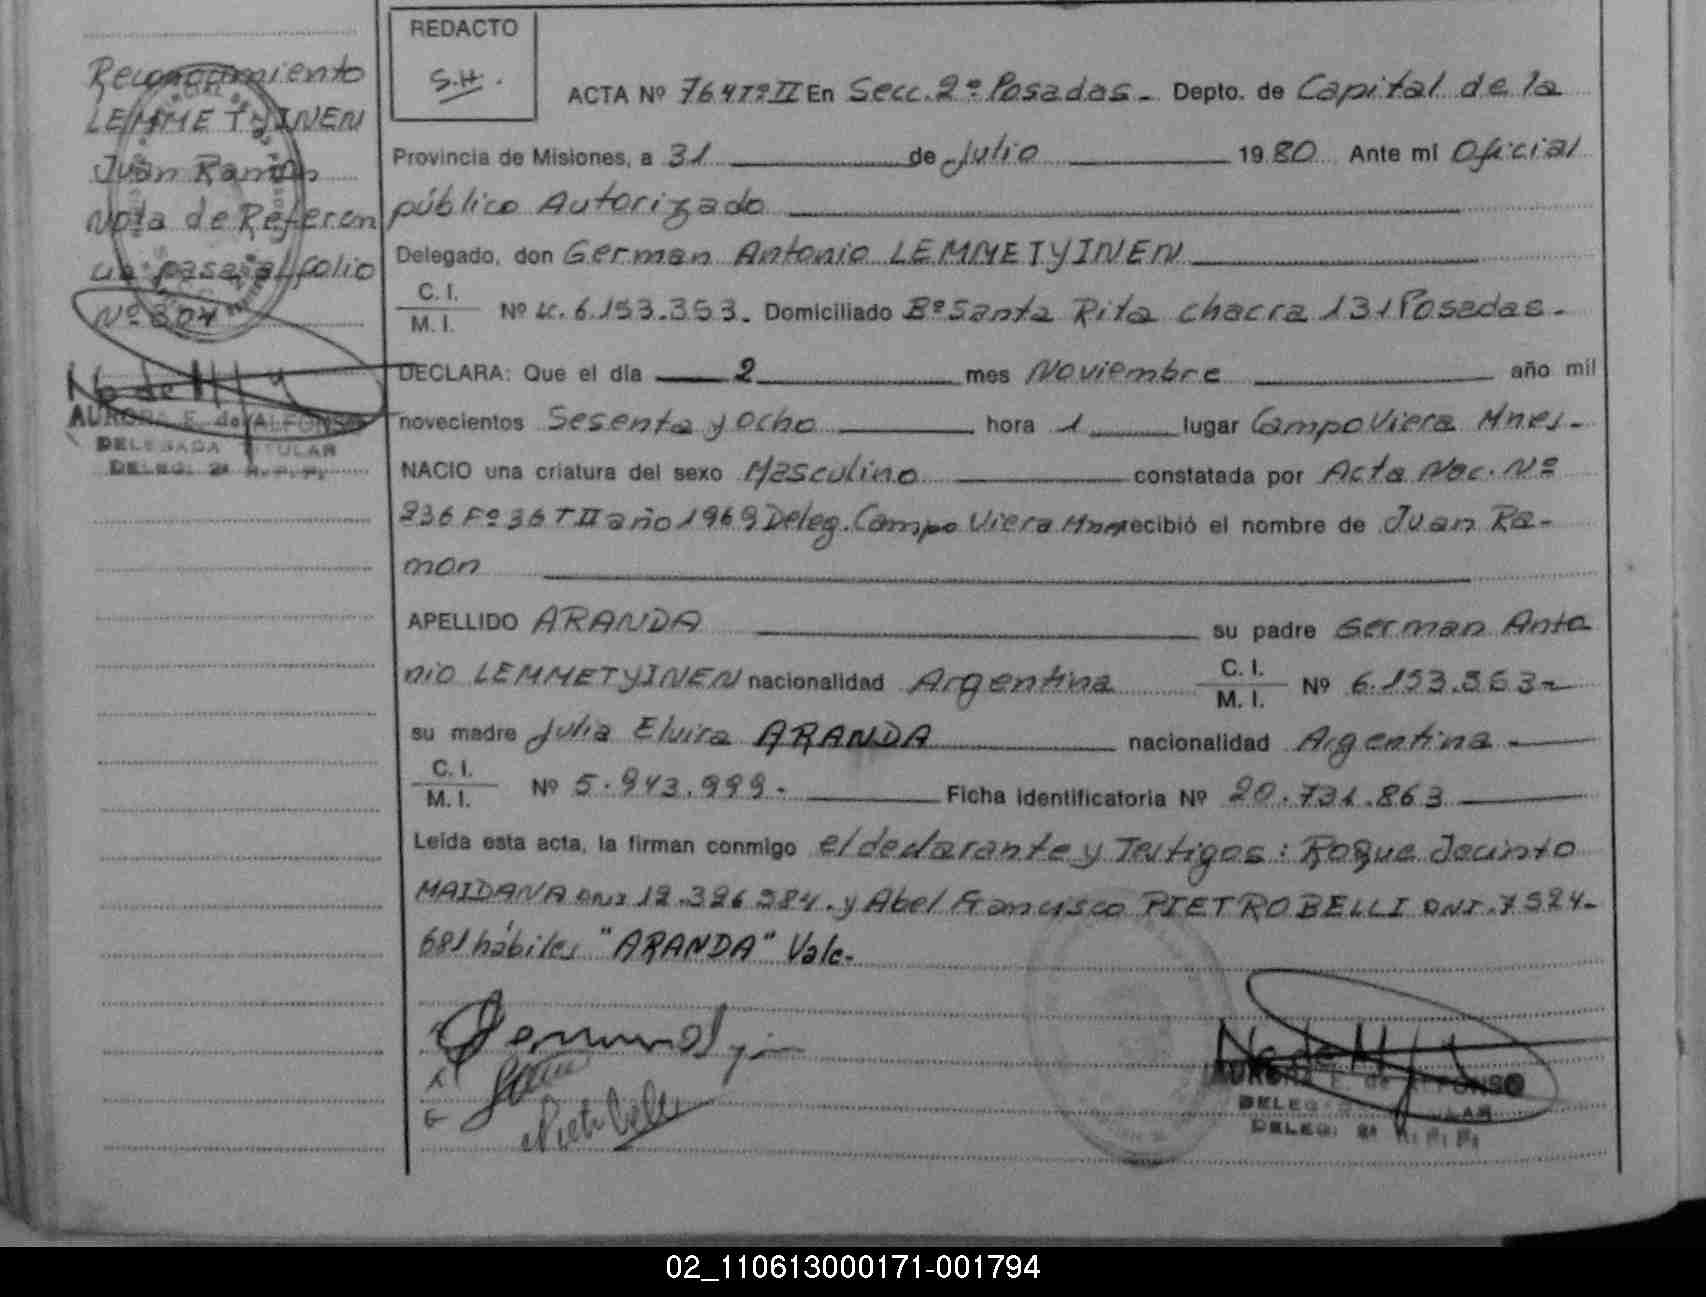 Reconocimiento
LEMMETYJNEN
Juan Ramón
Nota de Referen
cia pasa al folio
Nº 304
AURORA E. de ALFONSO
DELEGADA TITULAR
DELEG. 2ª
REDACTO
S.H.
ACTA Nº 764 Tº II En Secc. 2º Posadas. Depto. de Capital de la
Provincia de Misiones, a 31 de Julio 1980 Ante mi Oficial
público Autorizado
Delegado, don German Antonio LEMMETYJNEN
C. I.
M. I. Nº 6.153.353. Domiciliado Bº Santa Rita chacra 131 Posadas.
DECLARA: Que el día 2 mes Noviembre año mil
novecientos Sesenta y ocho hora 1 lugar Campo Viera Mnes.
NACIO una criatura del sexo Masculino constatada por Acta Nac. Nº
236 Fº 36 T II año 1969 Deleg. Campo Viera Mnes recibió el nombre de Juan Ra-
mon
APELLIDO ARANDA su padre German Anto
nio LEMMETYJNEN nacionalidad Argentina C. I.
M. I. Nº 6.153.353
su madre Julia Elvira ARANDA nacionalidad Argentina
C. I.
M. I. Nº 5.943.999. Ficha identificatoria Nº 20.731.863
Leída esta acta, la firman conmigo el declarante y Testigos: Roque Jacinto
MAIDANA DNI 12.326.384. y Abel Francisco PIETROBELLI DNI. 7524-
681 hábiles "ARANDA" Vale.
AURORA E. de ALFONSO
DELEGADA TITULAR
DELEG. 2ª
02_110613000171-001794